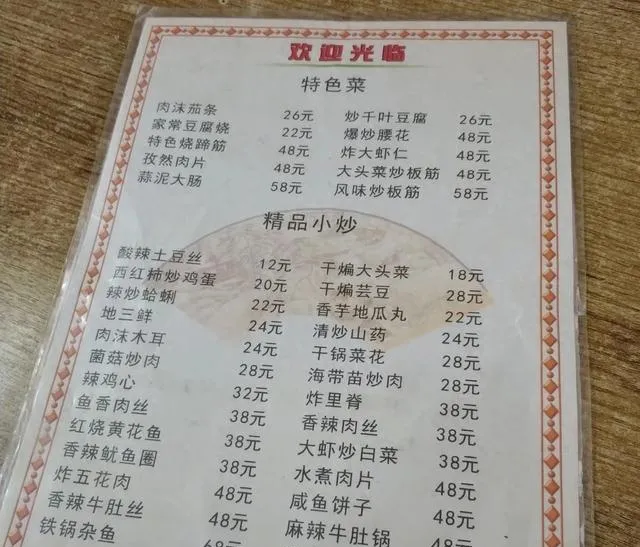 欢迎光临
特色菜
肉沫茄条 26元 炒千叶豆腐 26元
家常豆腐烧 22元 爆炒腰花 48元
特色烧蹄筋 48元 炸大虾仁 48元
孜然肉片 48元 大头菜炒板筋 48元
蒜泥大肠 58元 风味炒板筋 58元
精品小炒
酸辣土豆丝 12元 干煸大头菜 18元
西红柿炒鸡蛋 20元 干煸芸豆 28元
辣炒蛤蜊 22元 香芋地瓜丸 22元
地三鲜 24元 清炒山药 24元
肉沫木耳 24元 干锅菜花 28元
菌菇炒肉 28元 海带苗炒肉 28元
辣鸡心 32元 炸里脊 38元
鱼香肉丝 38元 香辣肉丝 38元
红烧黄花鱼 38元 大虾炒白菜 38元
香辣鱿鱼圈 38元 水煮肉片 48元
炸五花肉 48元 咸鱼饼子 48元
香辣牛肚丝 48元 麻辣牛肚锅 48元
铁锅杂鱼 68元